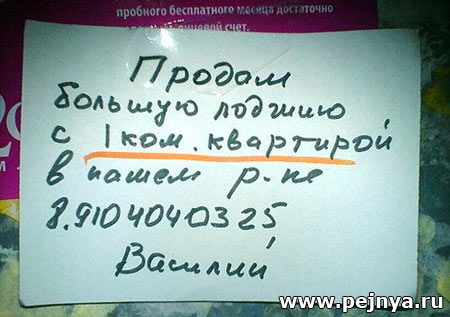 пробного бесплатного месяца достаточно
счет.
Продам
большую лоджию
с 1 ком. квартирой
в нашем р-не
8.9104040325
Василий
www.pejnya.ru